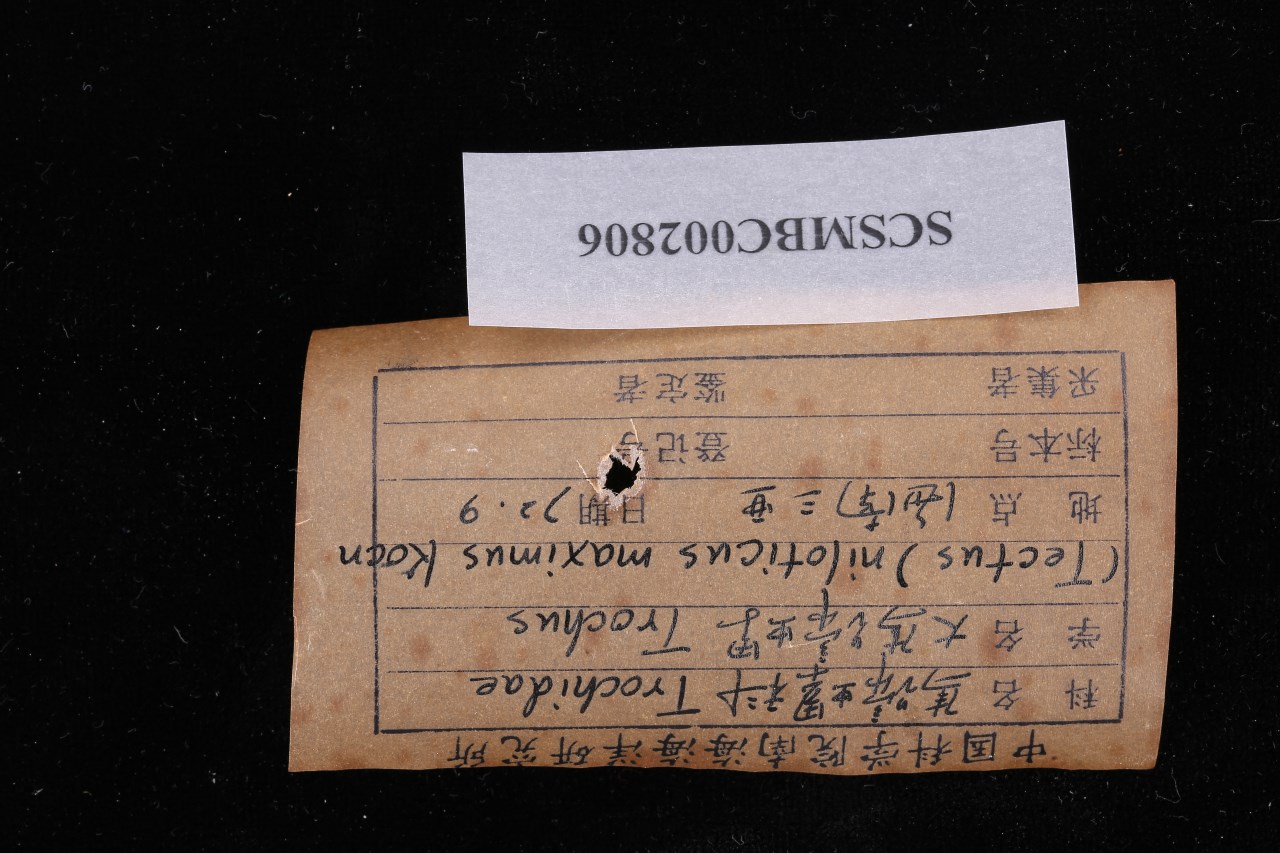 中国科学院南海海洋研究所
科 名 馬蹄螺科 Trochidae
学 名 大馬蹄螺 Trochus
(Tectus) niloticus maximus Koen
地 点 海南三亚 日期 72.9
标本号 登记号
采集者 鉴定者
SCSMBC002806